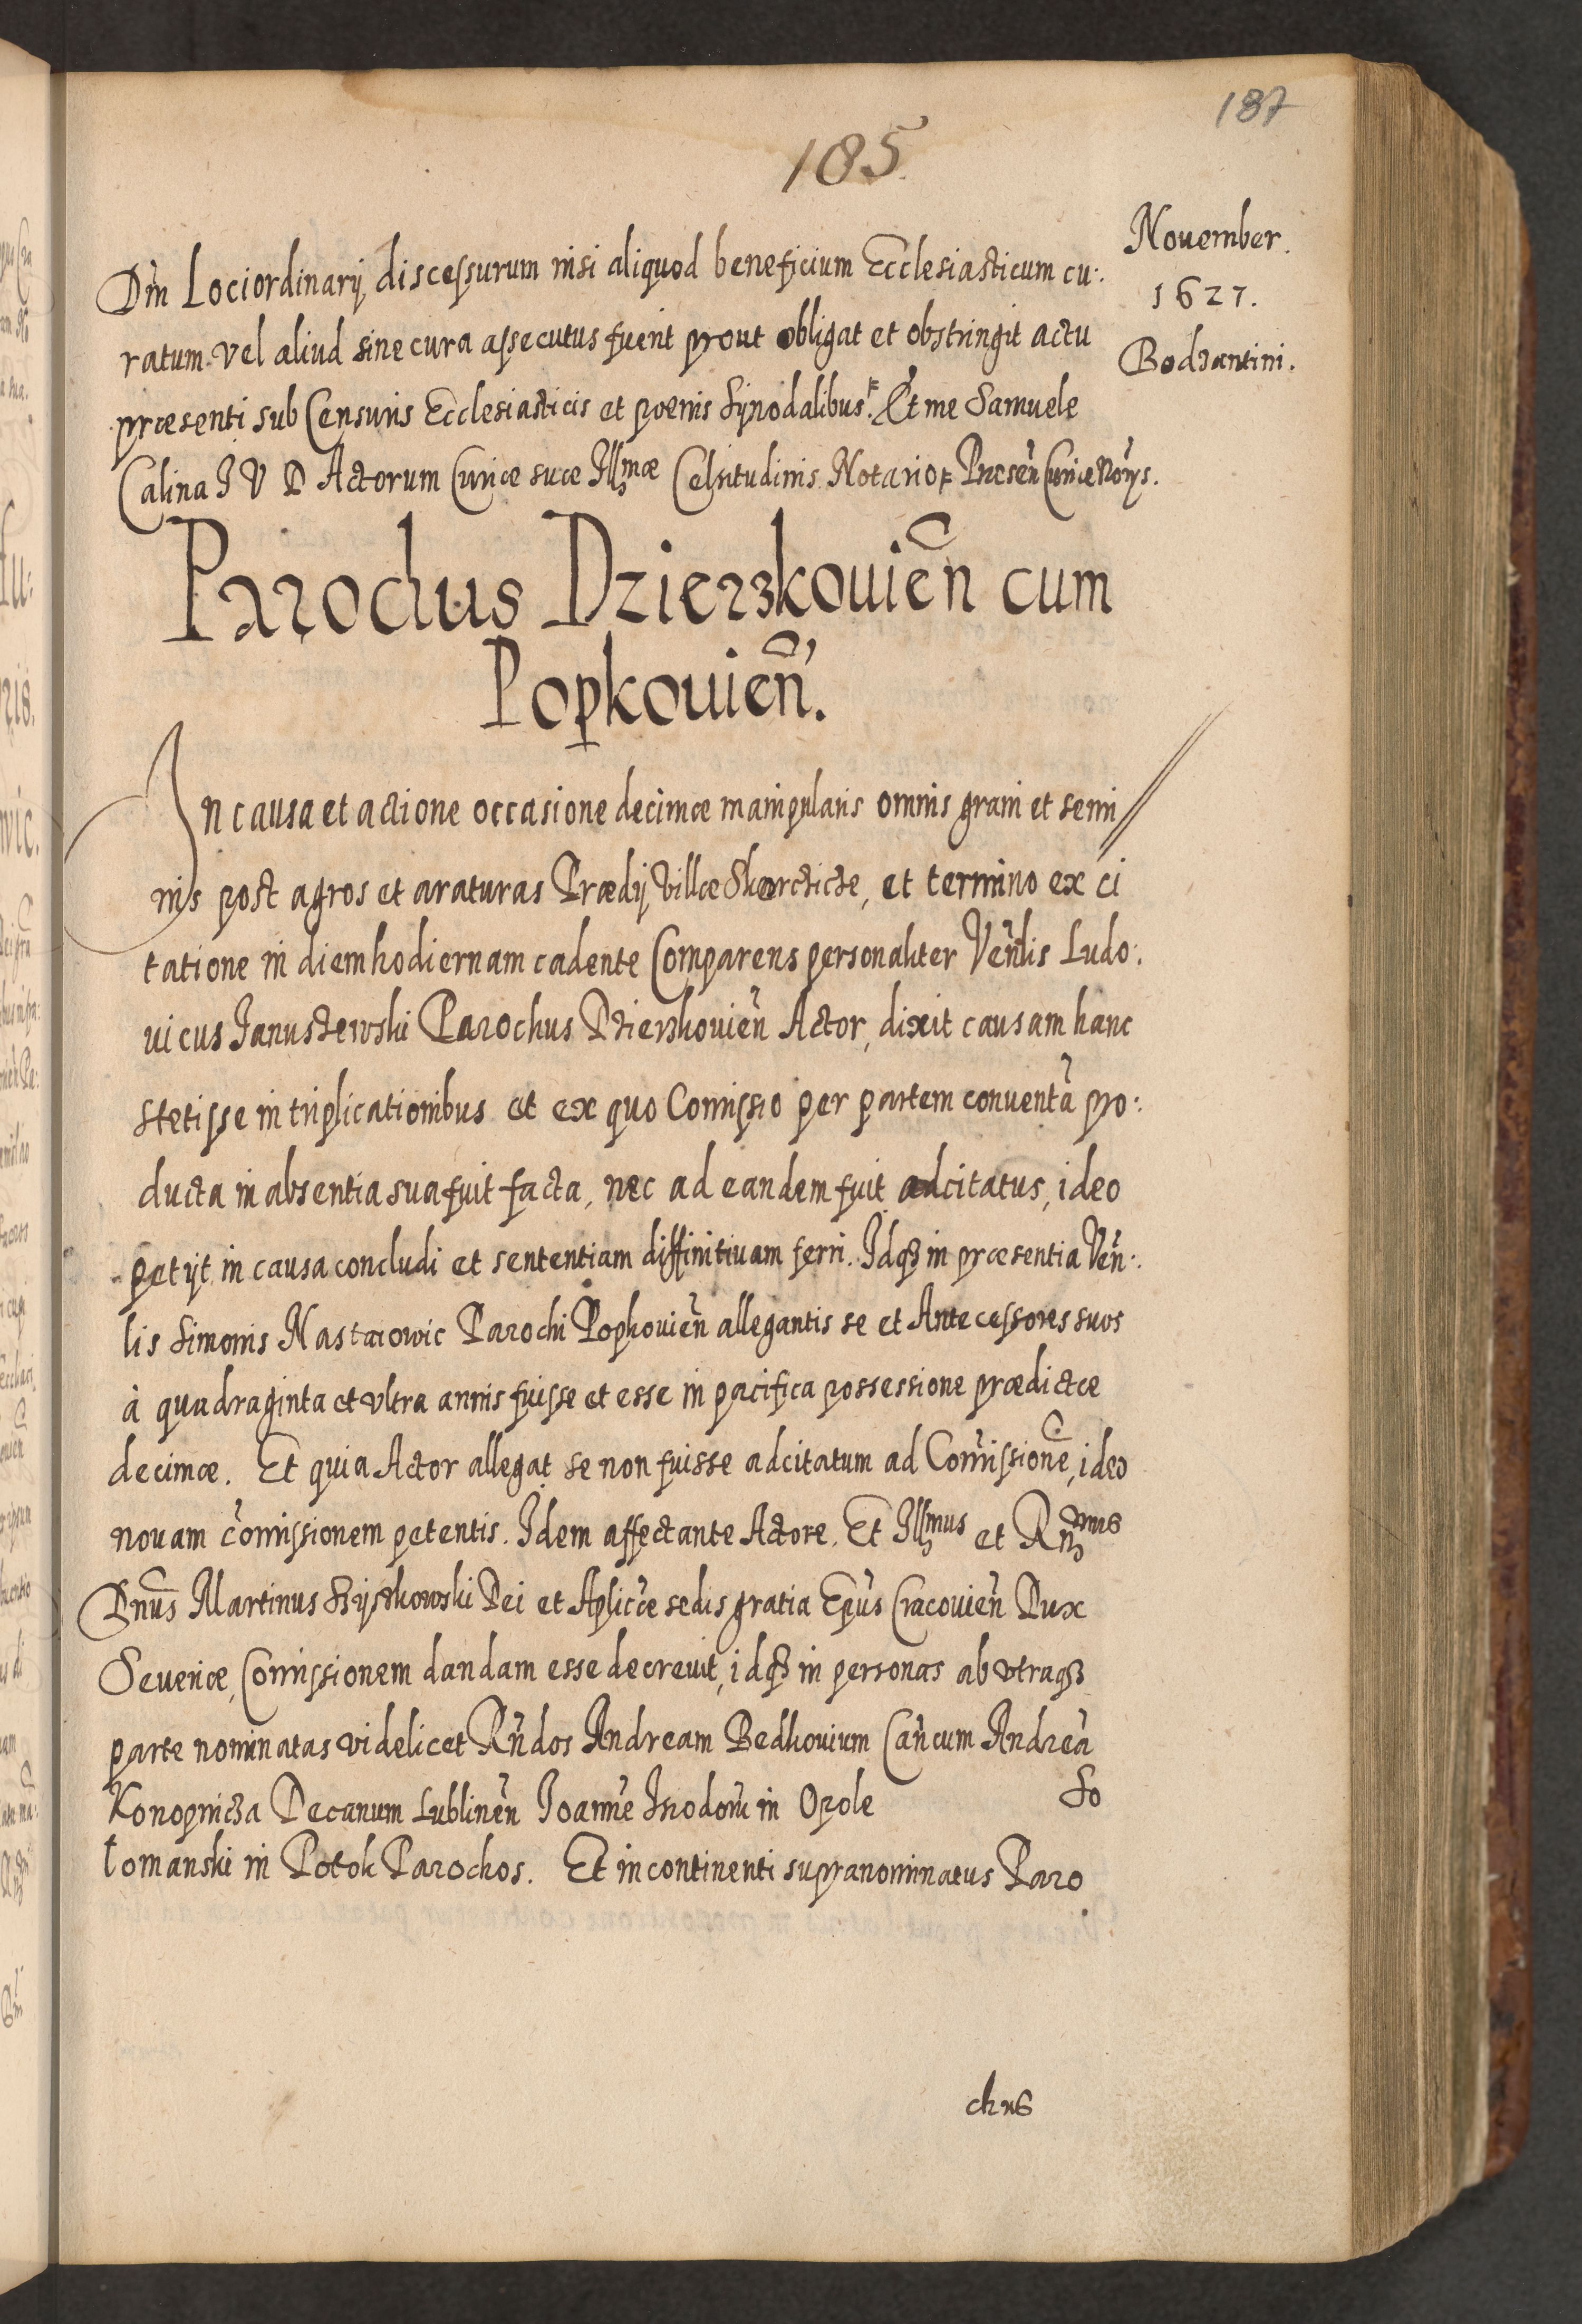 187
185.
November.
1627.
Bodzantini.
Dm̃ Lociordinarij discessurum nisi aliquod beneficium Ecclesiasticum cu:
ratum vel aliud sine cura assecutus fuerit prout obligat et obstringit actu
præsenti sub Censuris Ecclesiasticis et poenis Synodalibus. Et me Samuele
Calina I V D Actorum Curiæ suæ Illmæ Celsitudinis Notario Præsen̄ Curiæ Norijs.
Parochus Dzierzkouien̄ cum
Popkouien̄.
In causa et actione occasione decimæ manipularis omnis grani et semi
nis post agros et araturas Prædij villæ et termino ex ci
tatione in diem hodiernam cadente Comparens personaliter Ven̄lis Ludo:
uicus Januszewski Parochus Dzierzkouien̄ Actor, dixit causam hanc
stetisse in triplicationibus et ex quo Com̃issio per partem conuentã pro:
ducta in absentia sua fuit facta, nec ad eandem fuit adcitatus, ideo
petijt in causa concludi et sententiam diffinitiuam ferri. Idq3 in præsentia Ven̄:
lis Simonis Parochi Popkouien̄ allegantis se et Antecessores suos
à quadraginta et vltra annis fuisse et esse in pacifica possessione prædictæ
decimæ. Et quia Actor allegat se non fuisse adcitatum ad Com̃issionẽ, ideo
nouam com̃issionem petentis. Idem affectante Actore. Et Illmus et Rn̄mus
Dn̄us Martinus Szyszkowski Dei et Aplicæ sedis gratia Ep̃us Cracouien̄ Dux
Seueriæ, Com̃issionem dandam esse decreuit, idq3 in personas ab vtraq3
parte nominatas videlicet Rn̄dos Andream Bedkouium Can̄cum Andreã
Konopnicza Decanum Lublinen̄ Joannẽ Isiodorũ in Opole So
tomanski in Potok Parochos. Et incontinenti supranominatus Paro
chus